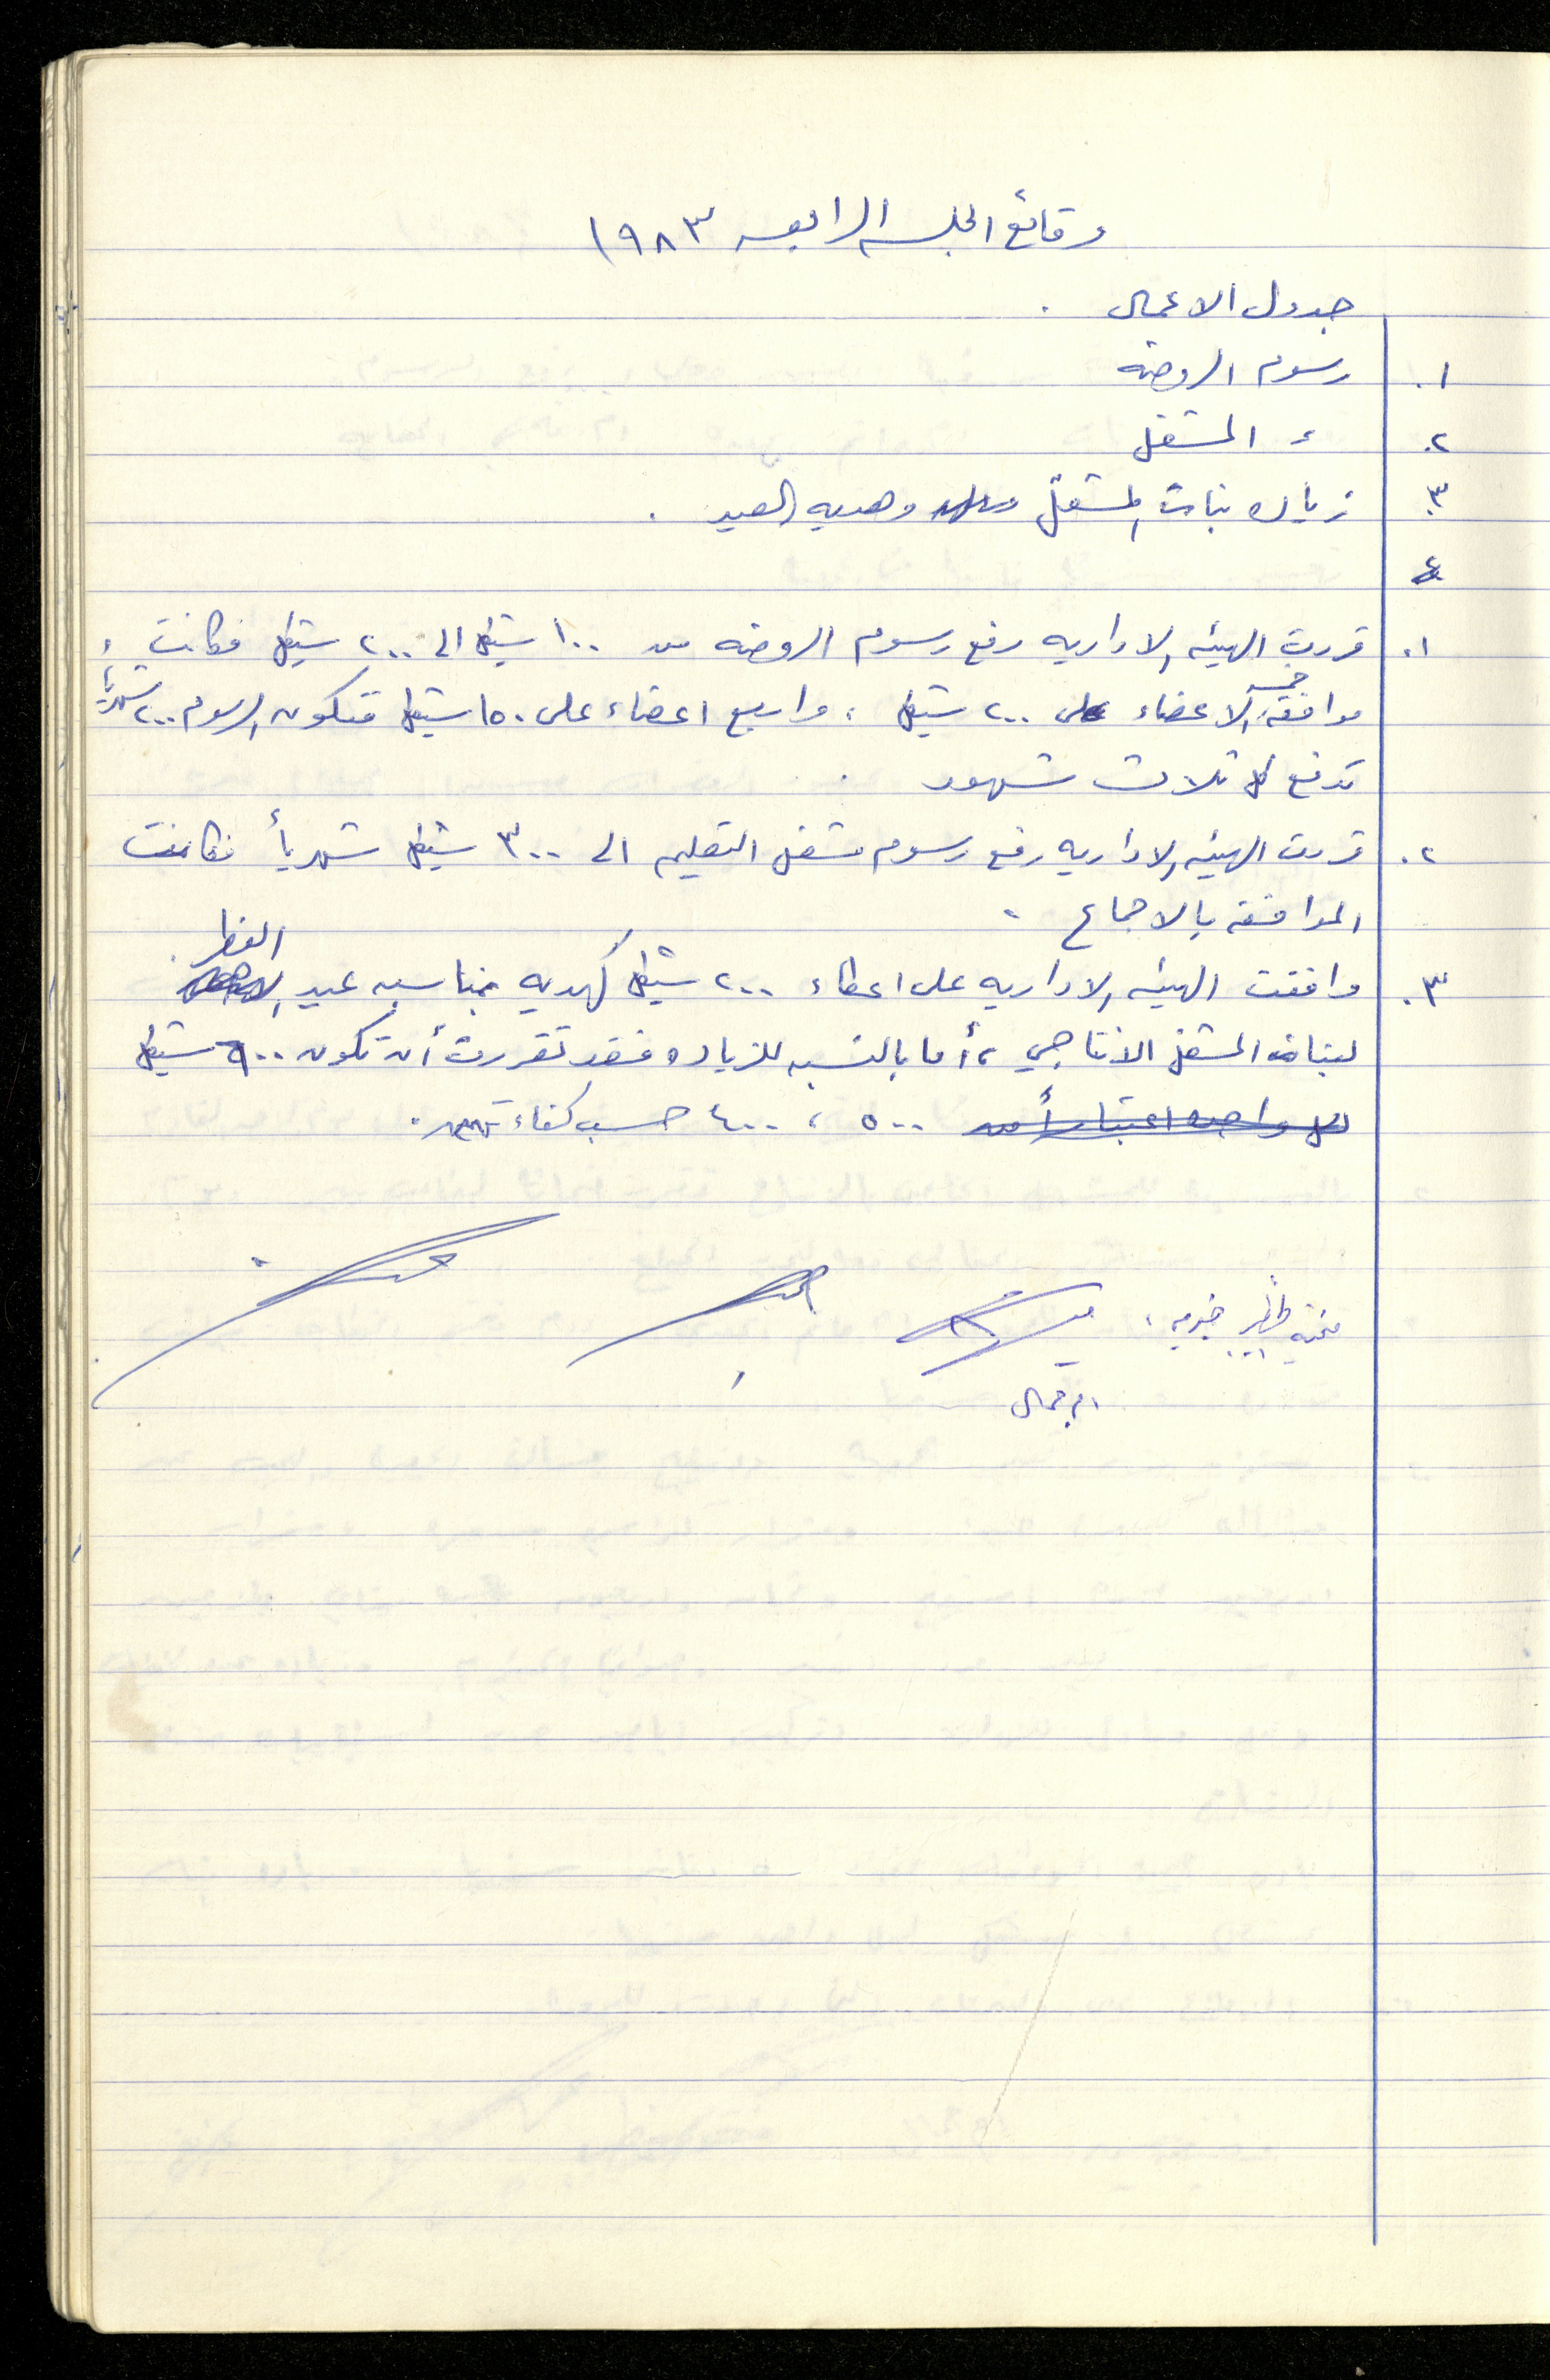 وقائع الجلسه الرابعه ١٩٨٣
جدول الاعمال .
١. رسوم الروضه
٢. = المشغل
٣. زياده بنات المشغل وهديه العيد .
٤
١. قررت الهيئه الاداريه رفع رسوم الروضه من ١٠٠ شيقل الى ٢٠٠ شيقل فكانت
موافقة خمسه الاعضاء على ٢٠٠ شيقل ، واربع اعضاء على ١٥٠ شيقل فتكون الرسوم ٢٠٠ شهرياً
تدفع كل ثلاث شهور .
٢. قررت الهيئه الاداريه رفع رسوم مشغل التعليم الى ٣٠٠ شيقل شهرياً فكانت
الموافقه بالاجماع .
٣. وافقت الهيئه الاداريه على اعطاء ٢٠٠ شيقل كهديه بمناسبه عيد الفطر .
لبنات المشغل الانتاجي ، أما بالنسبه للزياده فقد تقررت أن تكون ٦٠٠ شيقل
لكل واحده اعتباراً من ٥٠٠ ، ٤٠٠ حسب كفاءتهن .
ام جمال